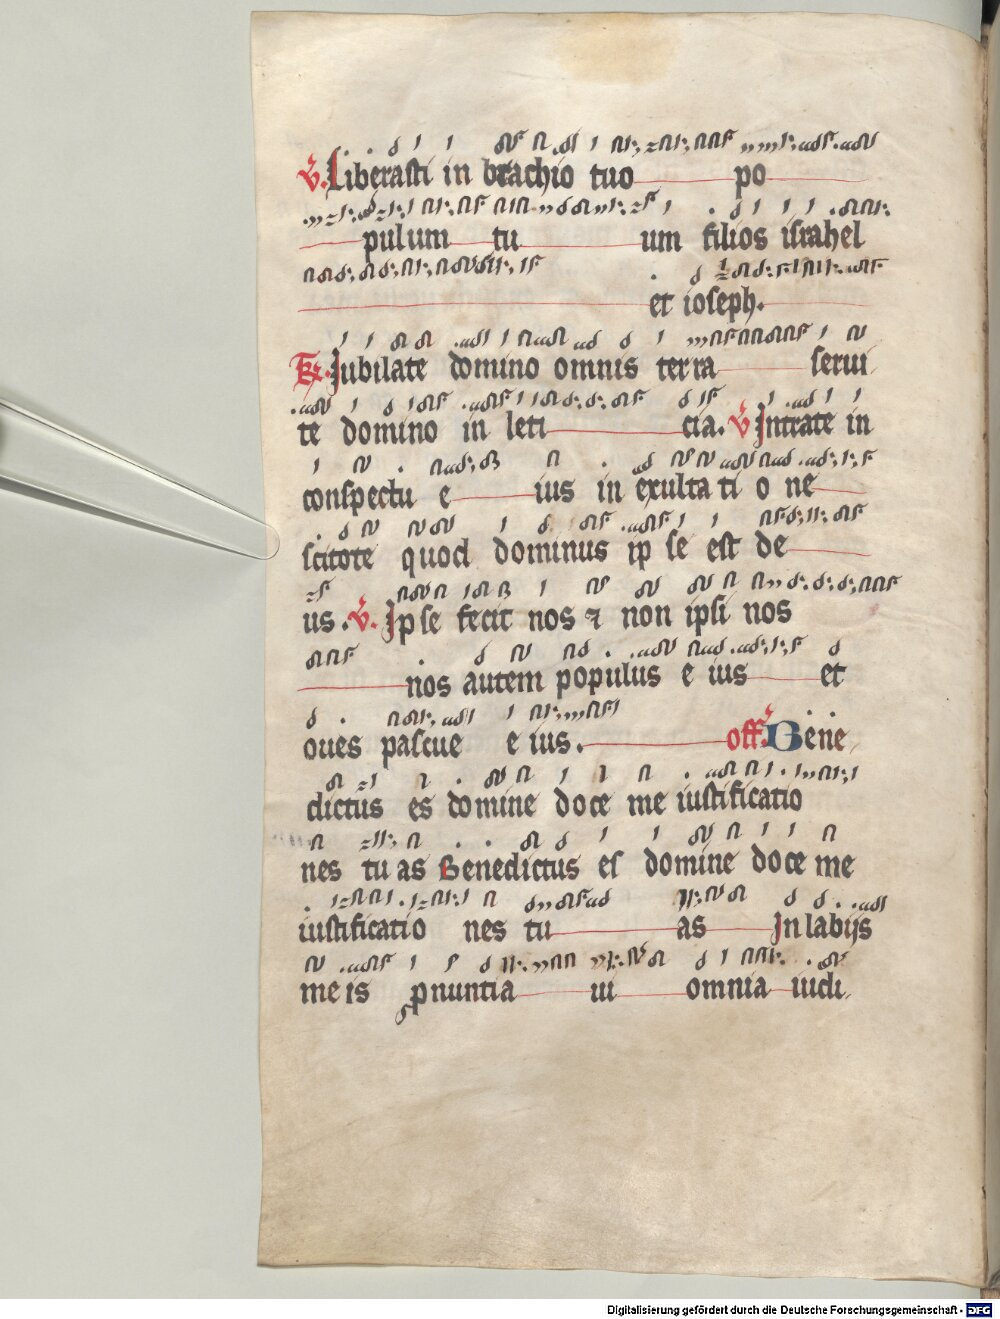 V. Liberasti in brachio tuo po
pulum tu um filios israhel
et ioseph.
Tr. Jubilate domino omnis terra serui
te domino in leti cia. V Intrate in
conspectu e ius in exulta ti o ne
scitote quod dominus ip se est de
us. V. Ipse fecit nos ⁊ non ipsi nos
nos autem populus e ius et
oues pascue e ius. off. Bene
dictus es domine doce me iustificatio
nes tu as Benedictus es domine doce me
iustificatio nes tu as In labijs
me is ꝓnuntia ui omnia iudi
Digitalisierung gefördert durch die Deutsche Forschungsgemeinschaft - DFG